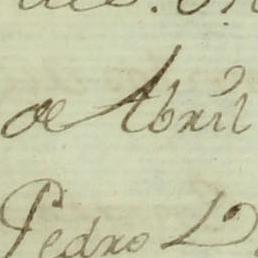 de Abril
Pedro L